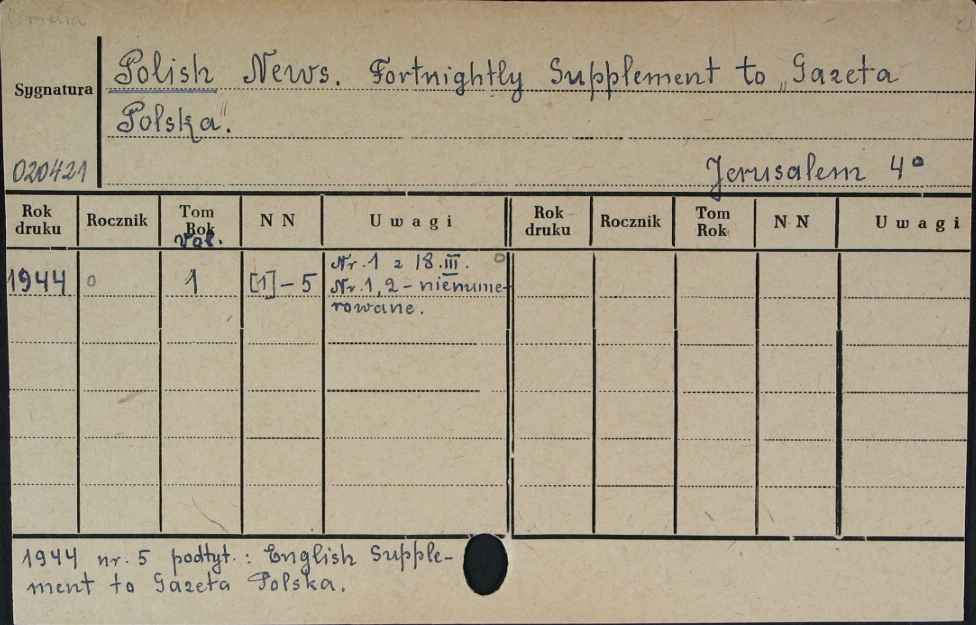 Sygnatura
Polish News. Fortnightly Supplement to „Gazeta
Polska".
020421
Jerusalem 4°
Rok druku Rocznik Tom Rok Vol. N N Uwagi Rok druku Rocznik Tom Rok N N Uwagi
1944 o 1 [1]-5 Nr. 1 z 18.III. o
Nr. 1, 2 - nienume-
rowane.
1944 nr. 5 podtyt.: English Supple-
ment to Gazeta Polska.